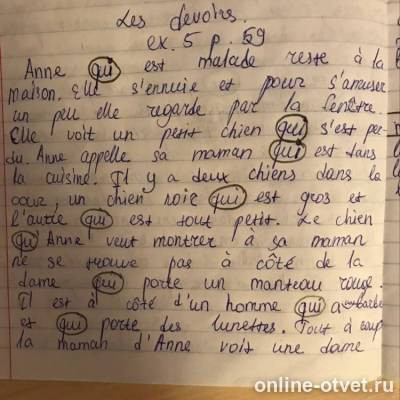 Les devoirs.
ex. 5 p. 59
Anne qui est malade reste à la
maison. Elle s'ennuie et pour s'amuser
un peu elle regarde par la fenêtre.
Elle voit un petit chien qui s'est per-
du. Anne appelle sa maman qui est dans
la cuisine. Il y a deux chiens dans la
cour, un chien noir qui est gros et
l'autre qui est tout petit. Le chien
qu'Anne veut montrer à sa maman
ne se trouve pas à côté de la
dame qui porte un manteau rouge.
Il est à côté d'un homme qui a barbe
et qui porte des lunettes. Tout à coup
la maman d'Anne voit une dame
online-otvet.ru